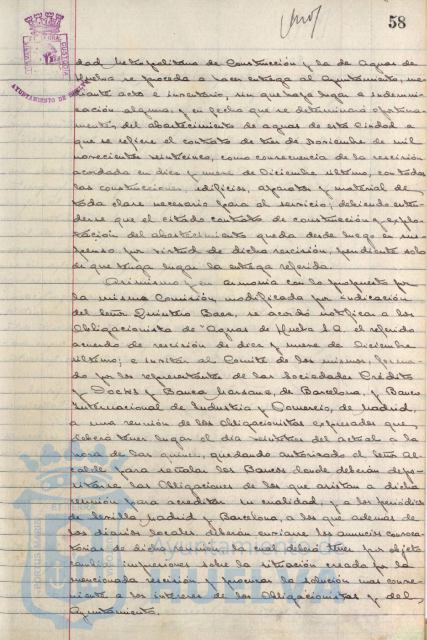 58
dad Metropolitana de Construcción y la de Aguas de
Huelva se proceda a hacer entrega al Ayuntamiento, me-
diante acta e inventario, sin que haya lugar a indemni-
zación alguna y en fecha que se determinará oportuna-
mente, del abastecimiento de aguas de esta Ciudad a
que se refiere el contrato de tres de Noviembre de mil
novecientos veinticinco, como consecuencia de la rescisión
acordada en diez y nueve de Diciembre último, con todas
las construcciones, edificios, aparatos y material de
toda clase necesario para el servicio; debiendo enten-
derse que el citado contrato de construcción y explo-
tación del abastecimiento queda desde luego en sus-
penso por virtud de dicha rescisión, pendiente solo
de que tenga lugar la entrega referida.
Asimismo y en armonía con lo propuesto por
la misma Comisión modificada por indicación
del Señor Quintero Baez, se acordó notificar a los
Obligacionistas de "Aguas de Huelva S.A. el referido
acuerdo de rescisión de diez y nueve de Diciembre
último; e invitar al Comité de los mismos, forma-
do por los representantes de las Sociedades Crédito
y Docks y Banca Marsans, de Barcelona, y Banco
Internacional de Industria y Comercio, de Madrid,
a una reunión de los Obligacionistas expresados que
deberá tener lugar el día del actual a la
hora de las quince, quedando autorizado el Señor Al-
calde para señalar los Bancos donde deberán depo-
sitarse las Obligaciones de los que asistan a dicha
reunión para acreditar su cualidad, y a los periódicos
de Sevilla, Madrid y Barcelona, a los que además de
los diarios locales, deberán enviarse los anuncios convoca-
torios de dicha reunión la cual deberá tener por objeto
cambiar impresiones sobre la situación creada por la
mencionada rescisión y procurar la solución mas conve-
niente a los intereses de los Obligacionistas y del
Ayuntamiento.
AYUNTAMIENTO DE HUELVA
HUELVA